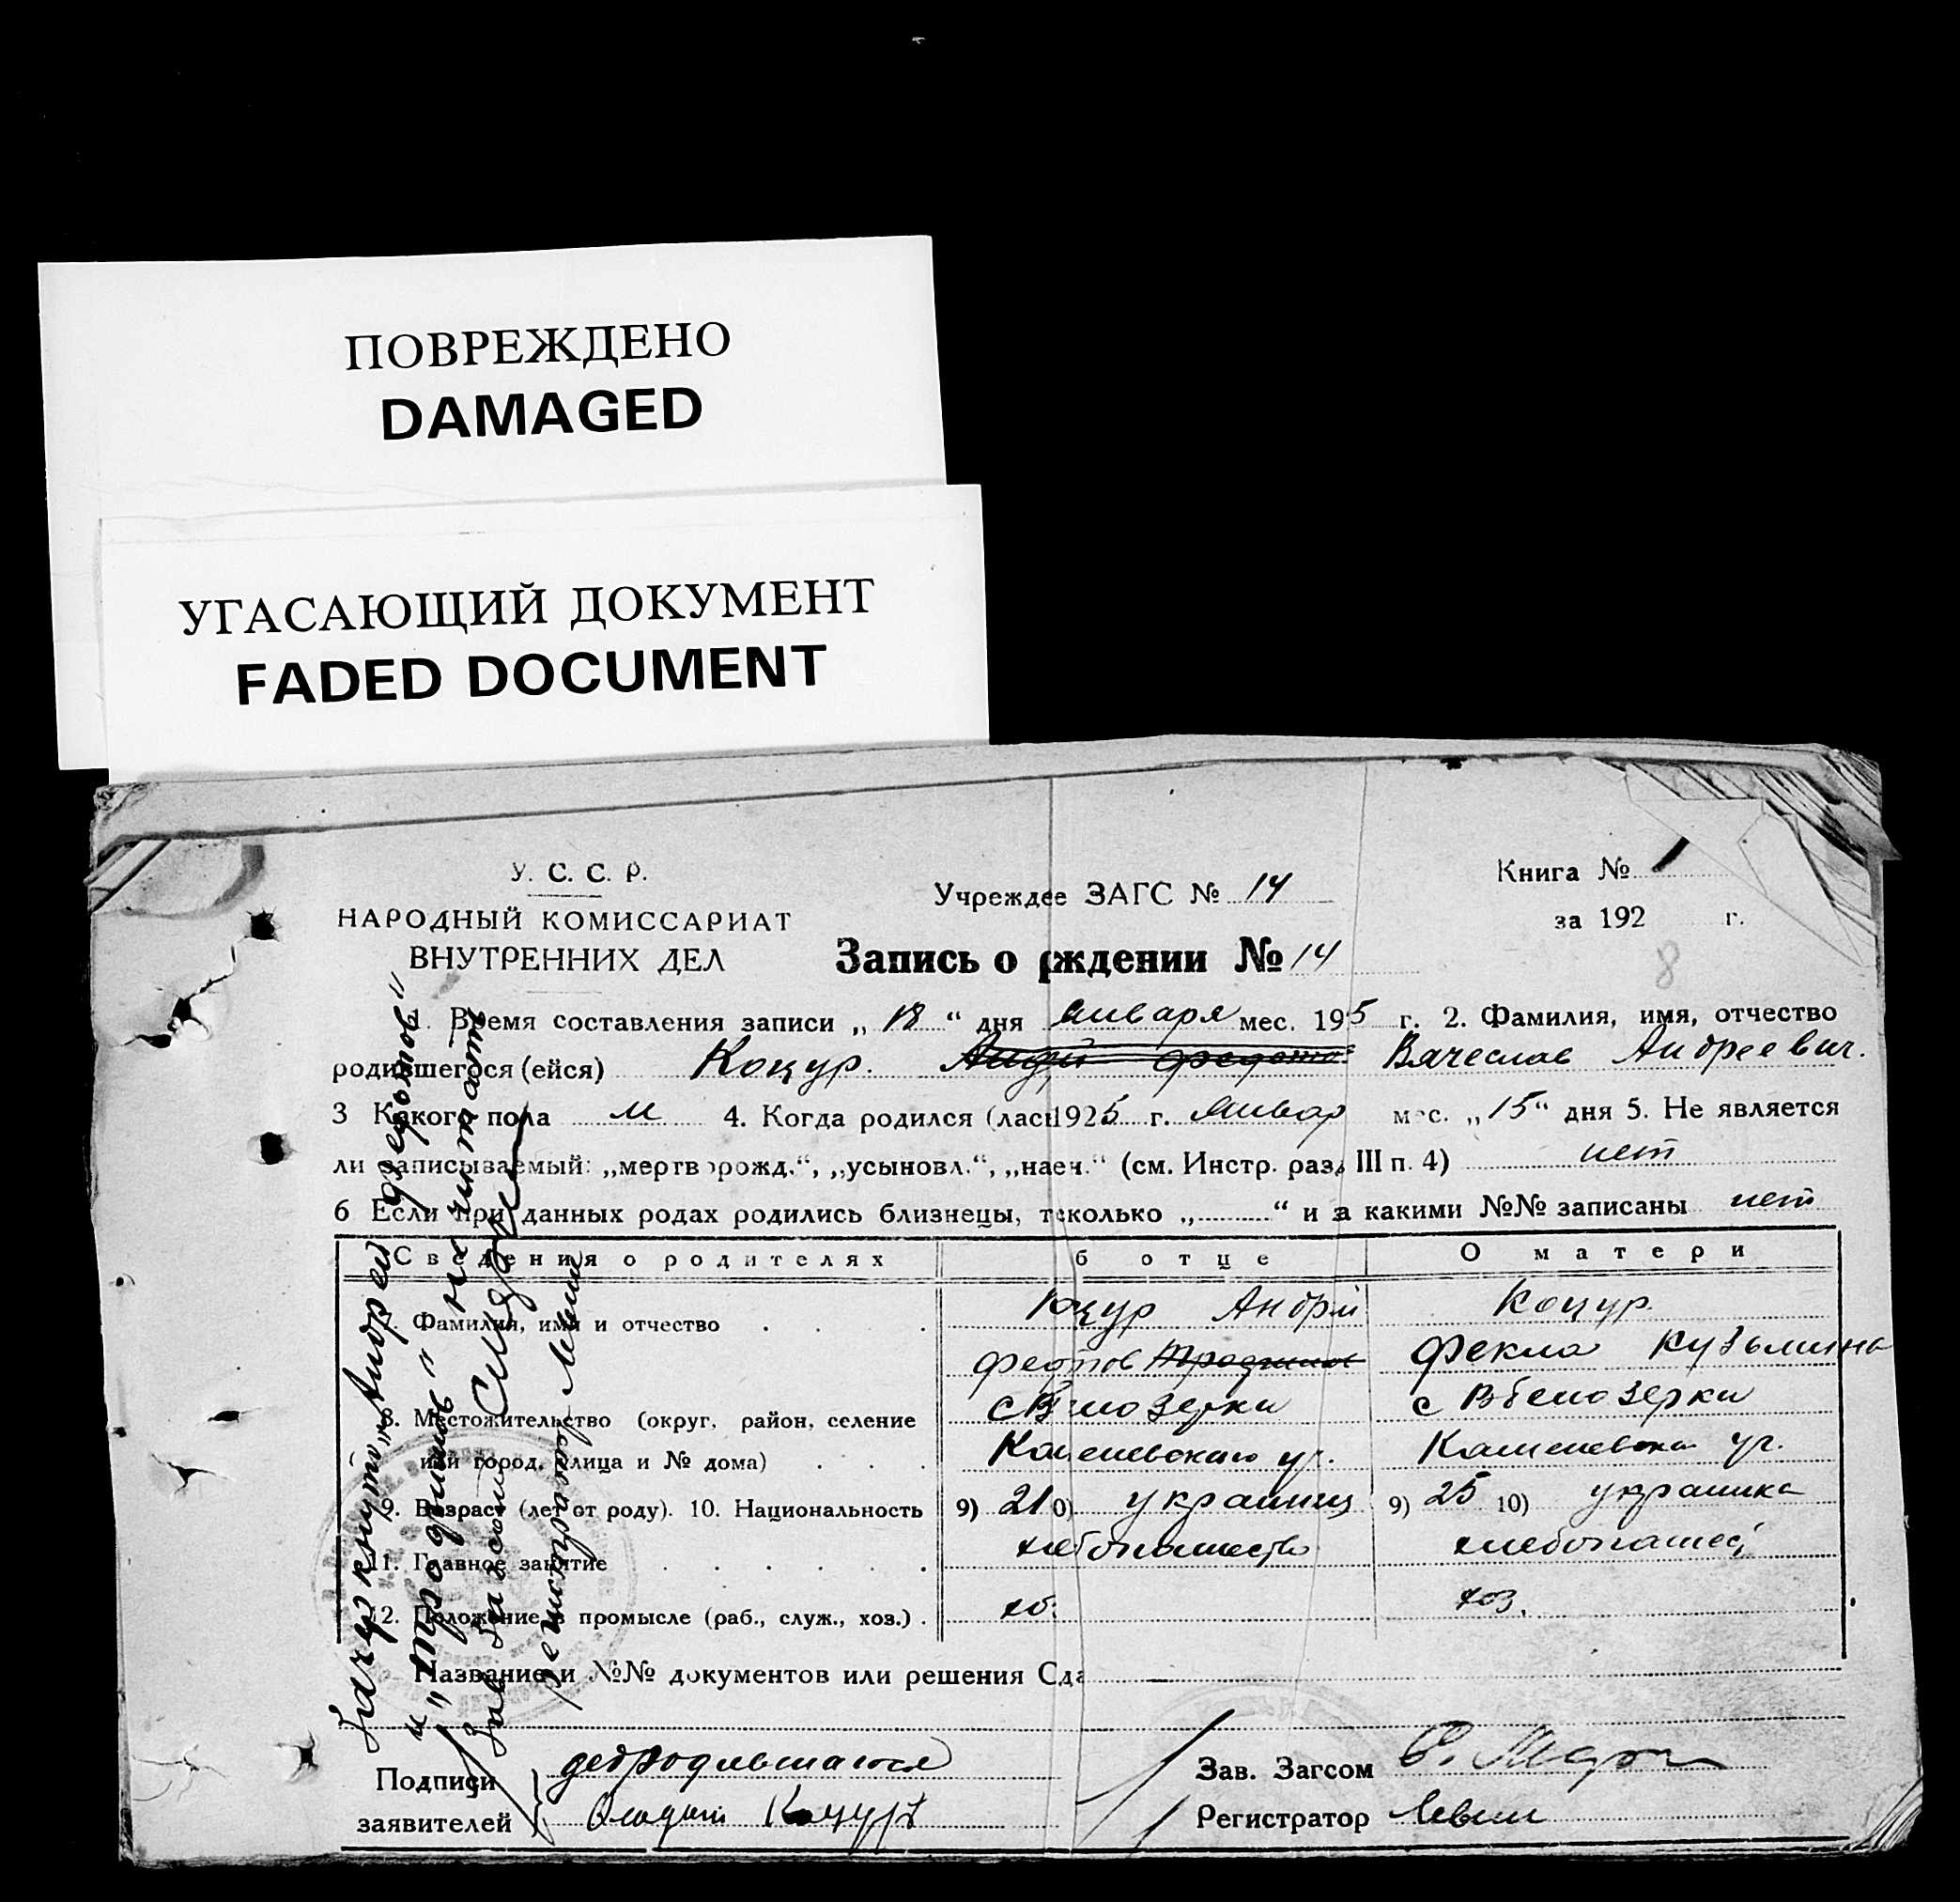 ПОВРЕЖДЕНО
DAMAGED
УГАСАЮЩИЙ ДОКУМЕНТ
FADED DOCUMENT
У. С. С. Р.
НАРОДНЫЙ КОМИССАРИАТ
ВНУТРЕННИХ ДЕЛ
Учреждее ЗАГС № 14
Книга № 1
за 192 г.
Запись о рждении № 14
8
1. Время составления записи „ 18 “ дня января мес. 195 г. 2. Фамилия, имя, отчество
родившегося (ейся) Коцур. Андрй федотов Вячеслав Андреевич.
3 Какого пола м 4. Когда родился (лась 1925 г. январ мес. „15“ дня 5. Не является
ли записываемый: „мертворожд.“, „усыновл.“, „наен.“ (см. Инстр. разд III п. 4) нет
6 Если при данных родах родились близнецы, тсколько „..........“ и за какими №№ записаны нет
Сведения о родителях б отце О матери
7. Фамилия, имя и отчество Кцур Андрй Коцур
федтов Фекла Кузьмина
8. Местожительство (округ, район, селение с Вбелозерки
или город, улица и № дома) Каменевского ур. Каменевска ур.
9. Возраст (лет от роду). 10. Национальность 9) 21 0) украинц 9) 25 10) украинка
11. Главное занятие хлебопашество хлебопашес
12. Положение в промысле (раб., служ., хоз.) хо. хоз.
Название и №№ документов или решения Сда
Подписи
заявителей Коцуръ
Зав. Загсом
Регистратор Левин
Зачеркнуто „Андрей федотов“
и „Тродимов“ не читать
Зав Загсом
регистратор Левин